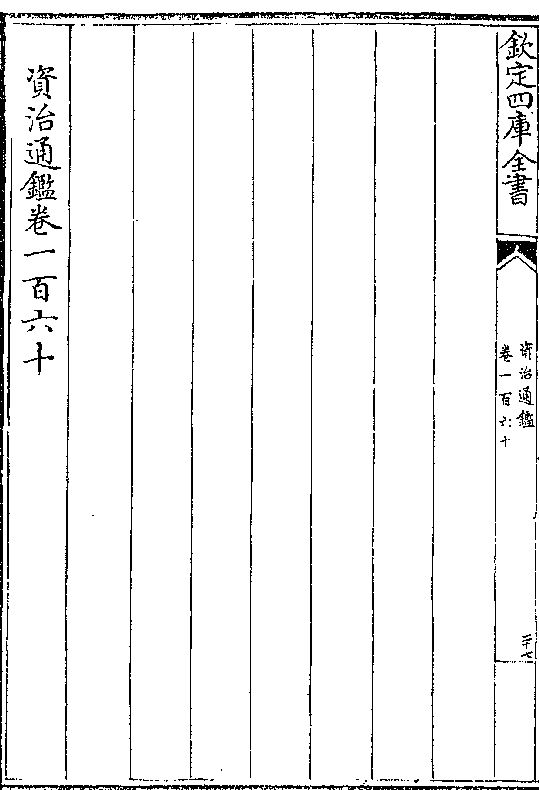 欽定四庫全書
資治通鑑
卷一百六十
二十七
資治通鑑卷一百六十